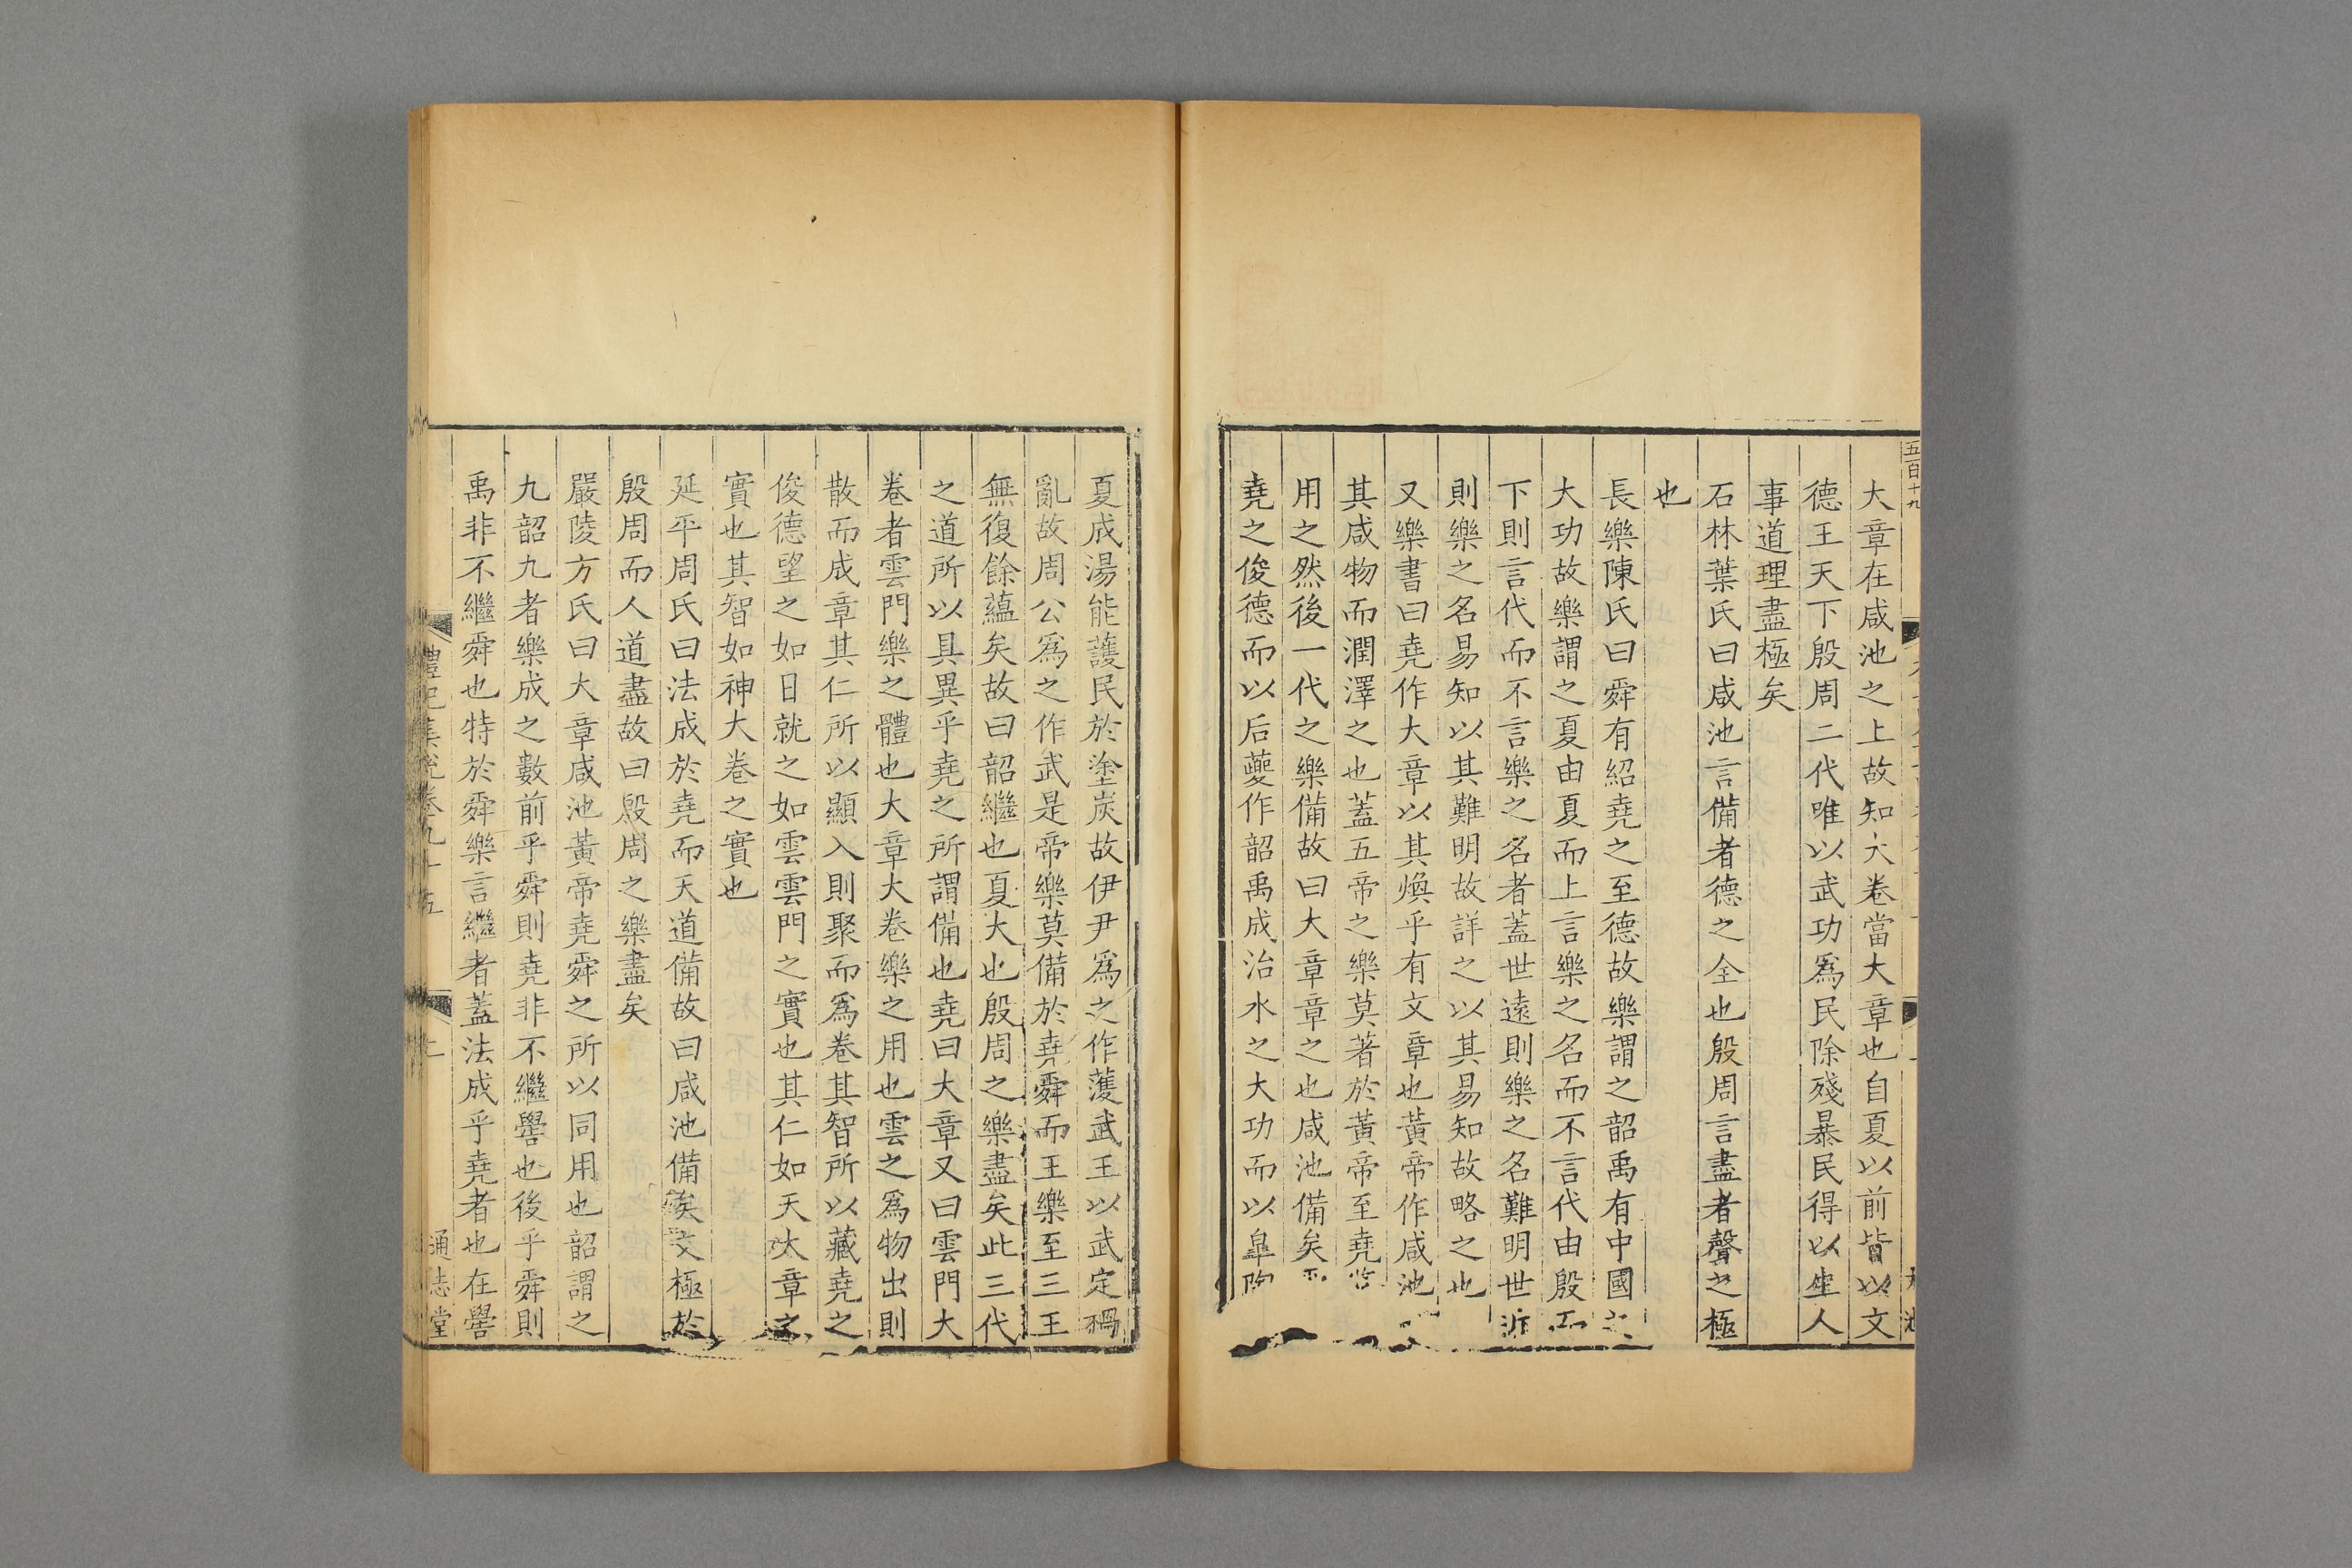 五百十九
大章在咸池之上故知大卷當大章也自夏以前皆以文
德王天下殷周二代唯以武功爲民除殘暴民得以生人
事道理盡極矣
石林葉氏曰咸池言備者德之全也殷周言盡者聲之極
也
長樂陳氏曰舜有紹堯之至德故樂謂之韶禹有中國之
大功故樂謂之夏由夏而上言樂之名而不言代由殷而
下則言代而不言樂之名者蓋世遠則樂之名難明世近
則樂之名易知以其難明故詳之以其易知故略之也
又樂書曰堯作大章以其煥乎有文章也黃帝作咸池
其咸物而潤澤之也蓋五帝之樂莫著於黃帝至堯
用之然後一代之樂備故曰大章章之也咸池備矣
堯之俊德而以后夔作韶禹成治水之大功而以皐陶
夏成湯能護民於塗炭故伊尹爲之作頀武王以武定禍
亂故周公爲之作武是帝樂莫備於堯舜而王樂至三王
無復餘蘊矣故曰韶繼也夏大也殷周之樂盡矣此三代
之道所以具異乎堯之所謂備也堯曰大章又曰雲門大
卷者雲門樂之體也大章大卷樂之用也雲之爲物出則
散而成章其仁所以顯入則聚而爲卷其智所以藏堯之
俊德望之如日就之如雲雲門之實也其仁如天大章之
實也其智如神大卷之實也
延平周氏曰法成於堯而天道備故曰咸池備矣文極於
殷周而人道盡故曰殷周之樂盡矣
嚴陵方氏曰大章咸池黃帝堯舜之所以同用也韶謂之
九韶九者樂成之數前乎舜則堯非不繼嚳也後乎舜則
禹非不繼舜也特於舜樂言繼者蓋法成乎堯者也在嚳
禮記集說卷九十五
通志堂